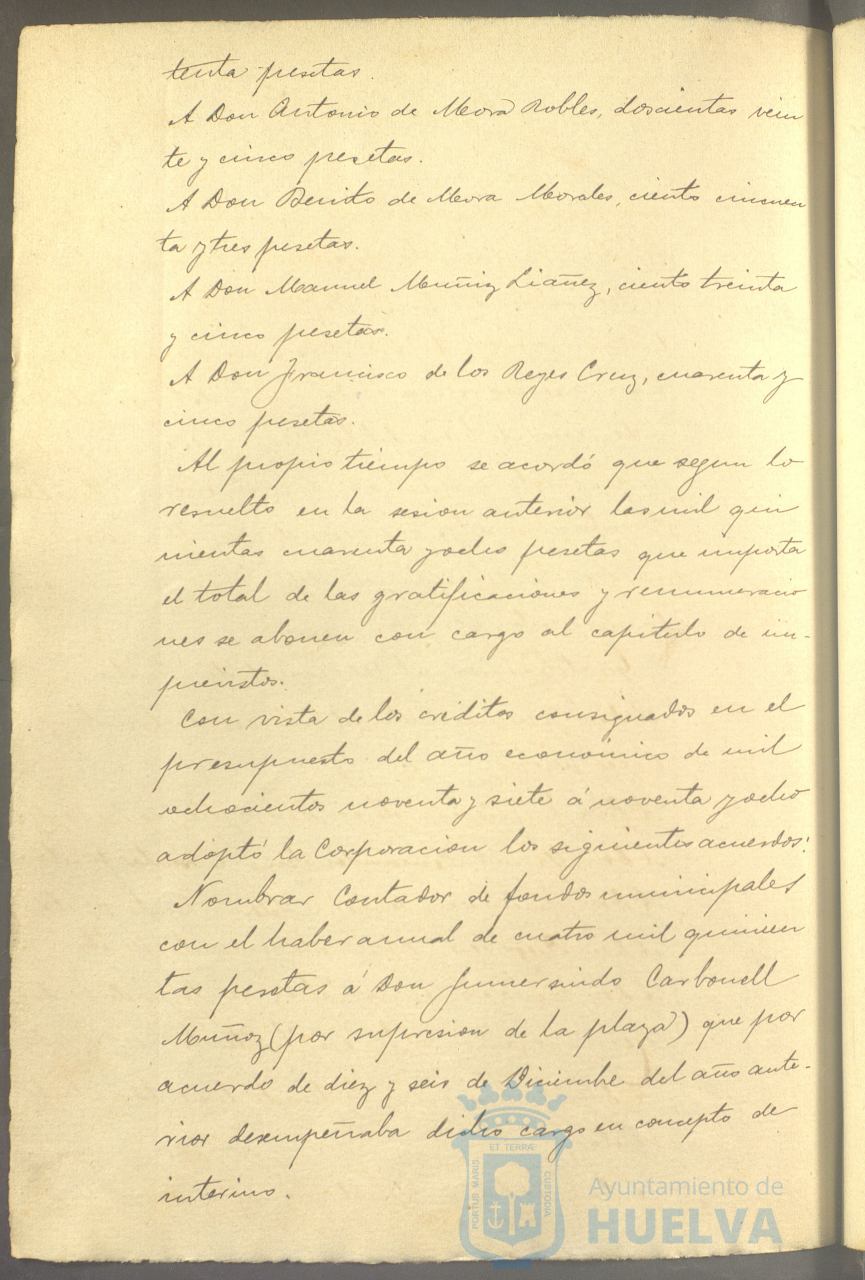 tenta pesetas.
A Don Antonio de Mora Robles, doscientas vein
te y cinco pesetas.
A Don Benito de Mora Morales, ciento cincuen
ta y tres pesetas.
A Don Manuel Muñiz Liañez, ciento treinta
y cinco pesetas.
A Don Francisco de los Reyes Cruz, cuarenta y
cinco pesetas.
Al propio tiempo se acordó que segun lo
resuelto en la sesion anterior las mil qui
nientas cuarenta y ocho pesetas que importa
el total de las gratificaciones y remuneracio
nes se abonen con cargo al capitulo de im-
previstos.
Con vista de los créditos consignados en el
presupuesto del año economico de mil
ochocientos noventa y siete á noventa y ocho
adoptó la Corporacion los siguientes acuerdos:
Nombrar Contador de fondos municipales
con el haber anual de cuatro mil quinien
tas pesetas á Don Gumersindo Carbonell
Muñoz (por supresion de la plaza) que por
acuerdo de diez y seis de Diciembre del año ante-
rior desempeñaba dicho cargo en concepto de
interino.
PORTUS MARIS ET TERRAE CUSTODIA
Ayuntamiento de
HUELVA